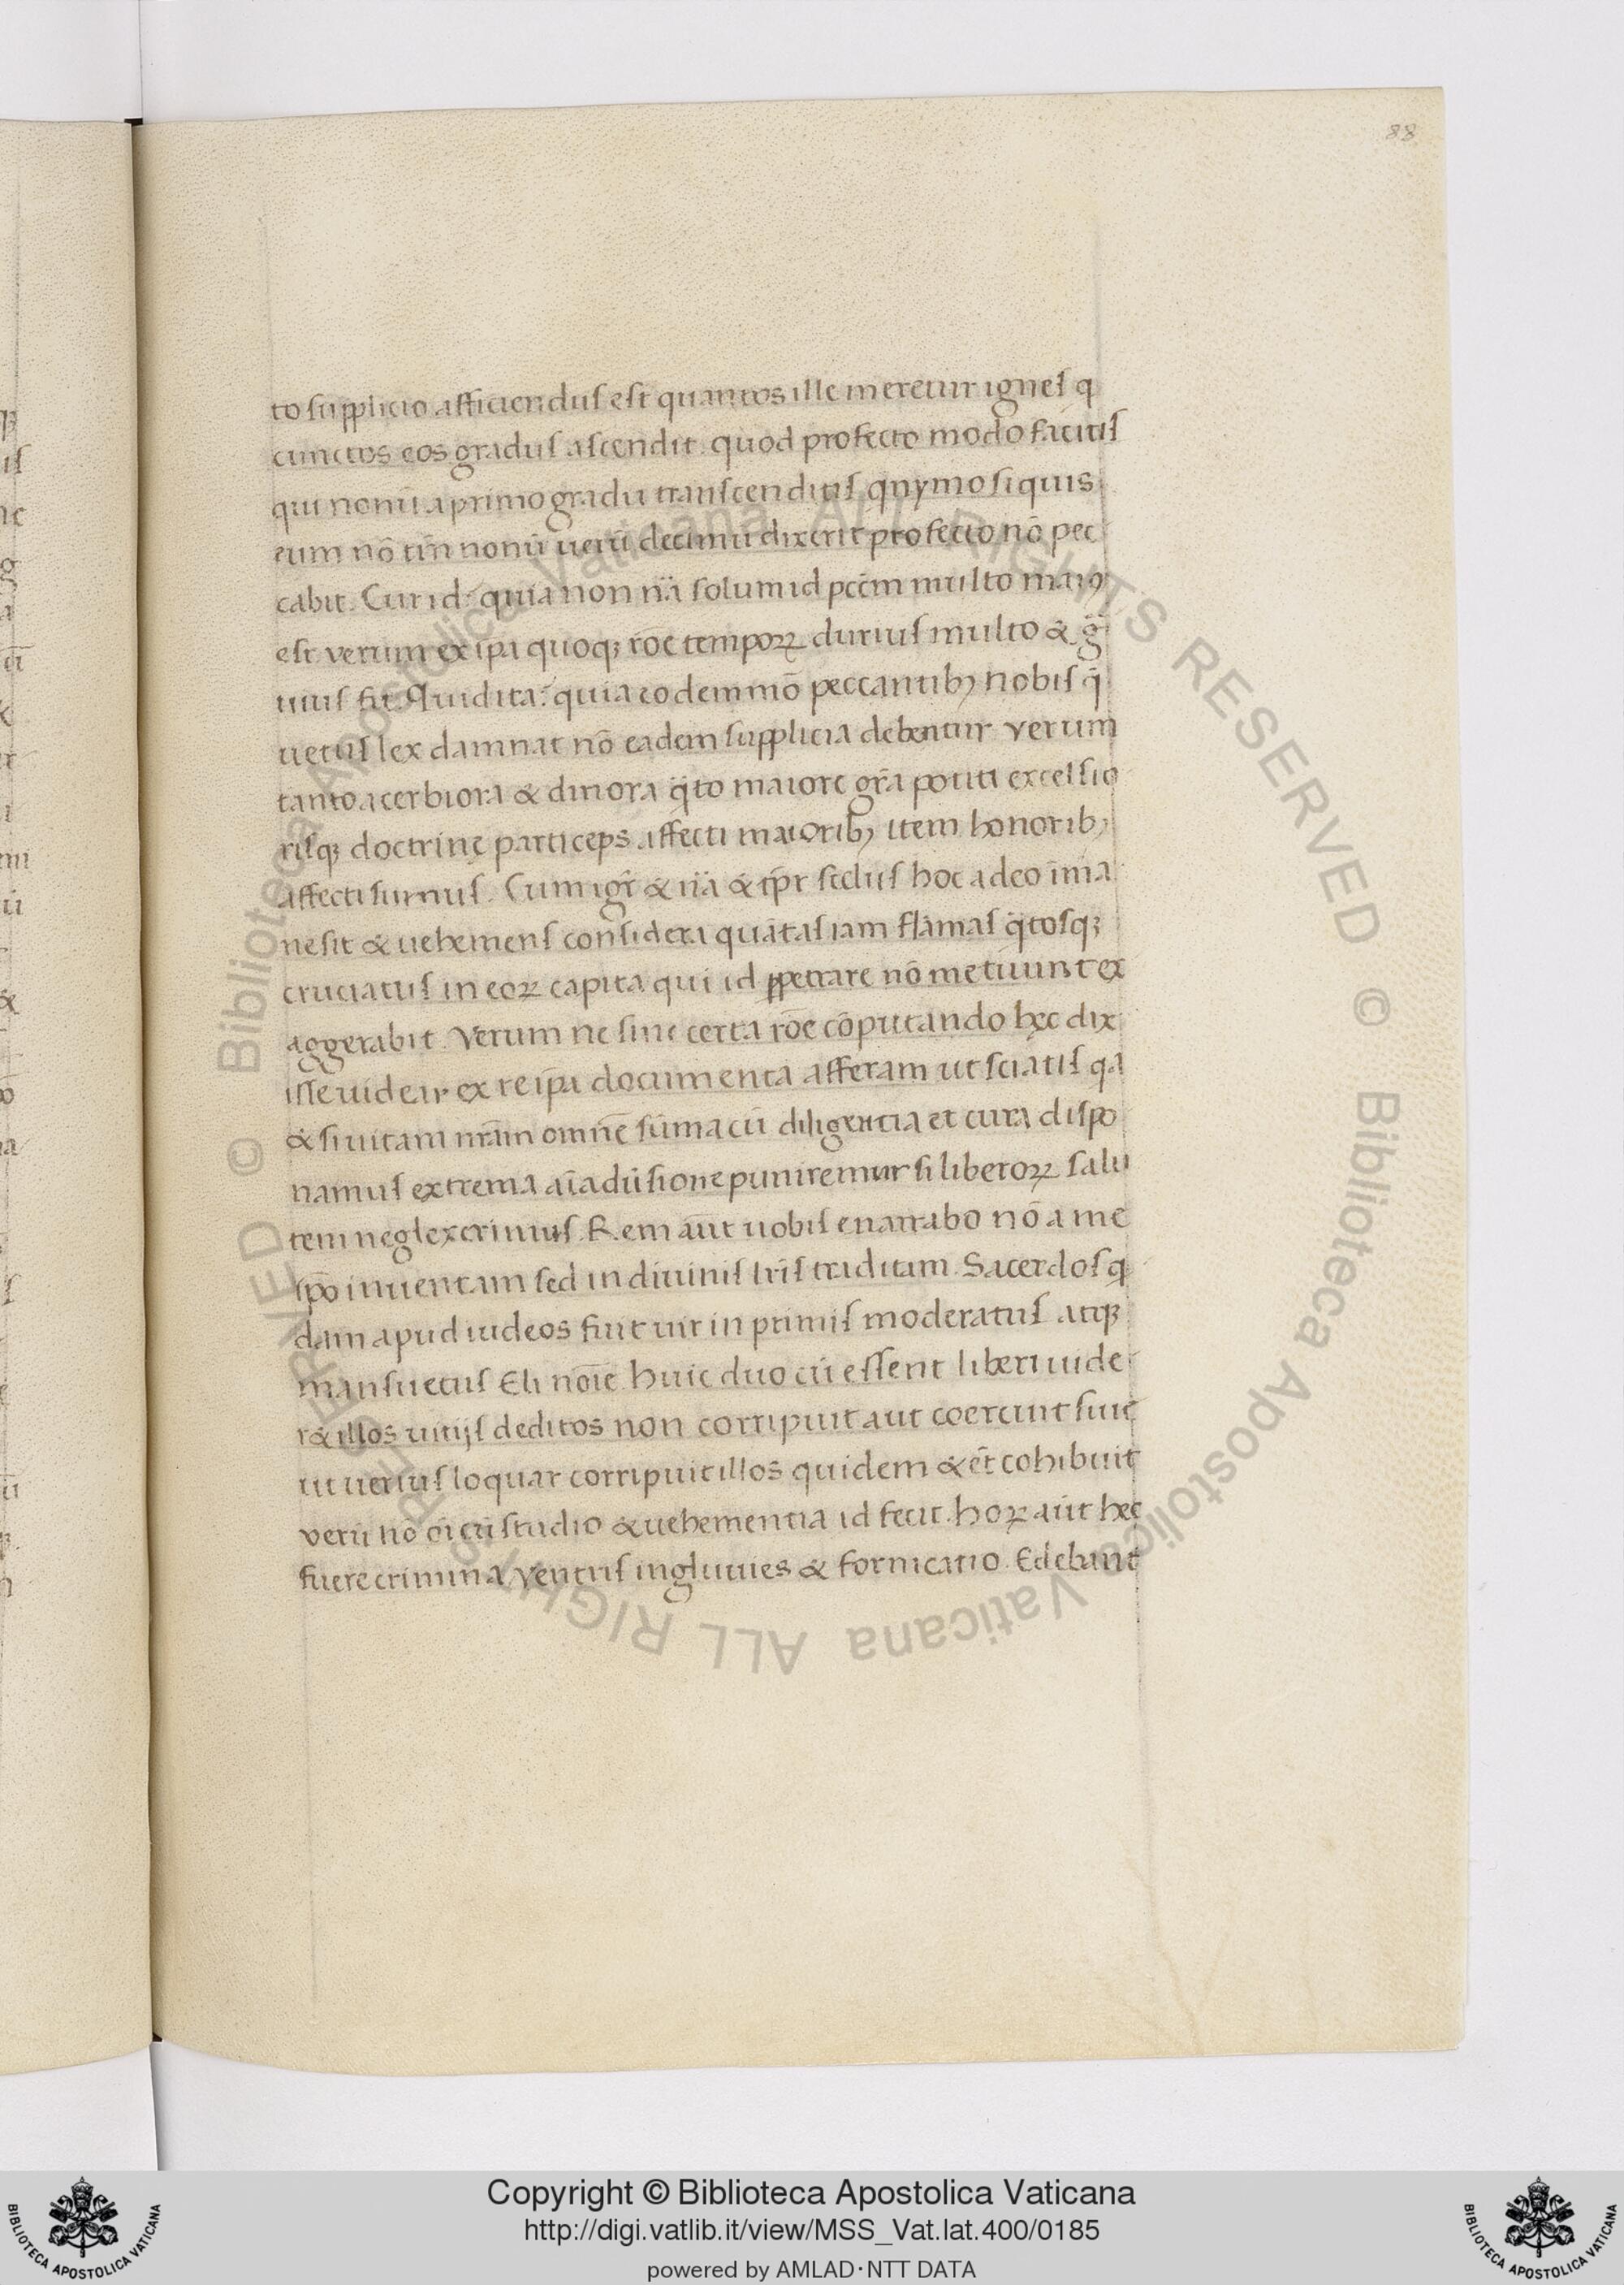 88
to supplicio afficiendus est quantos ille meretur ignes q
cunctos eos gradus ascendit. quod profecto modo facitis
qui nonū a primo gradu transcenditis qnymo siquis
eum nō tm̄ nonū uerū decimū dixerit profecto nō pec
cabit. Cur id? quia non nā solum id pccm̄ multo maiꝰ
est verum ex ip̄a quoqꝫ rōe tempoꝝ durius multo & gͣ
uius fit. Quid ita? quia eodem mō peccantibꝫ nobis q̄
uetus lex damnat nō eadem supplicia debentur verum
tanto acerbiora & diriora q̄to maiore grā potiti excelsio
risqꝫ doctrinę particeps affecti maioribꝫ item honoribꝫ
affecti sumus. Cum igr̄ & nā & tp̄r scelus hoc adeo īma
ne sit & uehemens considera quātas iam flāmas q̄tosqꝫ
cruciatus in eoꝝ capita qui id ꝑpetrare nō metuunt ex
aggerabit. Verum ne sine certa rōe cōputando hęc dix
isse uidear ex re ip̄a documenta afferam ut sciatis qa
& si uitam nr̄am omnē sūma cū diligentia et cura dispo
namus extrema aīaduersione puniremur si liberoꝝ salu
tem neglexerimus. Rem aūt uobis enarrabo nō a me
ip̄o inuentam sed in diuinis lr̄is traditam. Sacerdos q
dam apud iudeos fuit uir in primis moderatus atqꝫ
mansuetus Eli noīe. huic duo cū essent liberi uide
r& illos uitijs deditos non corripuit aut coercuit siue
ut uerius loquar corripuit illos quidem & ēt cohibuit
verū nō oī cū studio & uehementia id fecit. hoꝝ aūt hęc
fuere crimina ventris ingluuies & fornicatio. Edebant
Copyright © Biblioteca Apostolica Vaticana
http://digi.vatlib.it/view/MSS_Vat.lat.400/0185
powered by AMLAD·NTT DATA
BIBLIOTECA APOSTOLICA VATICANA
BIBLIOTECA APOSTOLICA VATICANA
© Biblioteca Apostolica Vaticana ALL RIGHTS RESERVED © Biblioteca Apostolica Vaticana ALL RIGHTS RESERVED